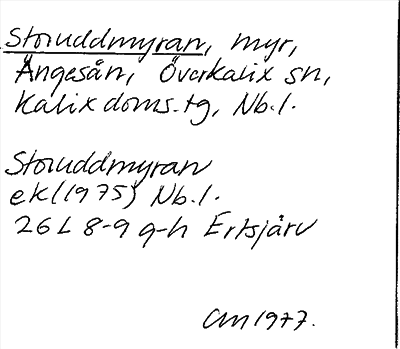 Storuddmyran, myr,
Ängesån, Överkalix sn,
Kalix doms.tg, Nb.l.
Storuddmyran
ek (1975) Nb.l.
26 L 8-9 g-h Ertsjärv
CM 1977.